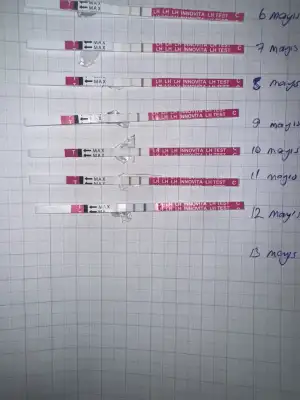 T MAX MAX LH LH LH INNOVITA LH TEST C 6 mayıs
MAX MAX LH LH LH INNOVITA LH TEST C 7 mayıs
MAX MAX LH LH LH INNOVITA LH TEST C 8 mayıs
MAX LH LH LH INNOVITA LH TEST C 9 mayıs
MAX MAX LH LH LH INNOVITA LH TEST C 10 mayıs
MAX MAX LH LH LH INNOVITA LH TEST C 11 mayıs
MAX MAX LH LH INNOVITA LH TEST C 12 mayıs
13 mayıs